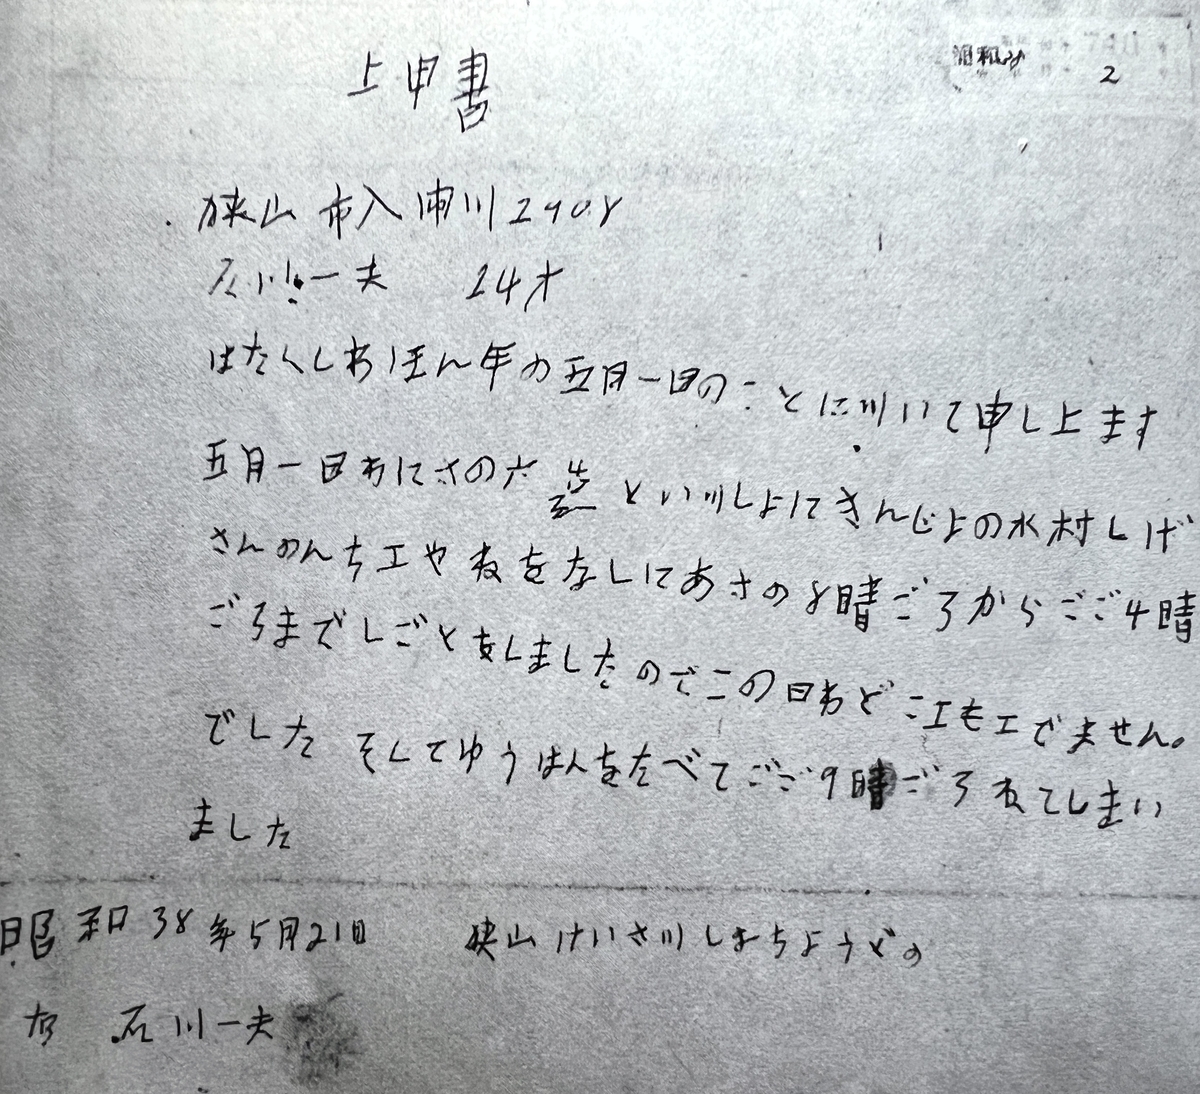 上申書
2
狭山市入間川2908
石川一夫 24才
はたくしわほん年の五月一日のことに川いて申し上ます
五月一日わにさの六造といツしょにきんじょの水村しげ
さんのんち工やねをなしにあさの8晴ごろからごご4晴
ごろまでしごとをしましたのでこの日わどこ工も工でません。
でした そしてゆうはんをたべてごご9晴ごろねてしまい
ました
昭和38年5月21日 狭山けいさ川しよちょうどの
石川一夫